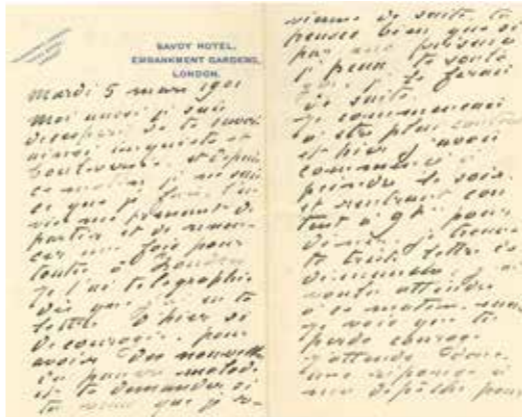 SAVOY HOTEL,
EMBANKMENT GARDENS,
LONDON.
Mardi 5 mars 1901
Moi aussi je suis
désespéré de te savoir
ainsi inquiète et
bouleversée. et depuis
ce matin je ne sais
ce que je fais. l'en-
vie me prenant de
partir et de renon-
cer une fois pour
toute à Londres
Je t'ai télégraphié
dès que j'ai eu ta
lettre d'hier si
découragée, pour
avoir des nouvelles
de pauvre malade
et te demander si
tu veux que je re-
vienne de suite. tu
penses bien que si
par
je peux te
je le ferai
de suite.
Je commençais
à être plus content
et hier j'avais
commencé à
peindre le soir.
et rentrant con
tent à 9h. pour
diner, je trouve
ta triste lettre. et
voulu attendre
à ce matin. mais
je vois que tu
perds courage
J'attends donc
une réponse à
ma dépêche pour